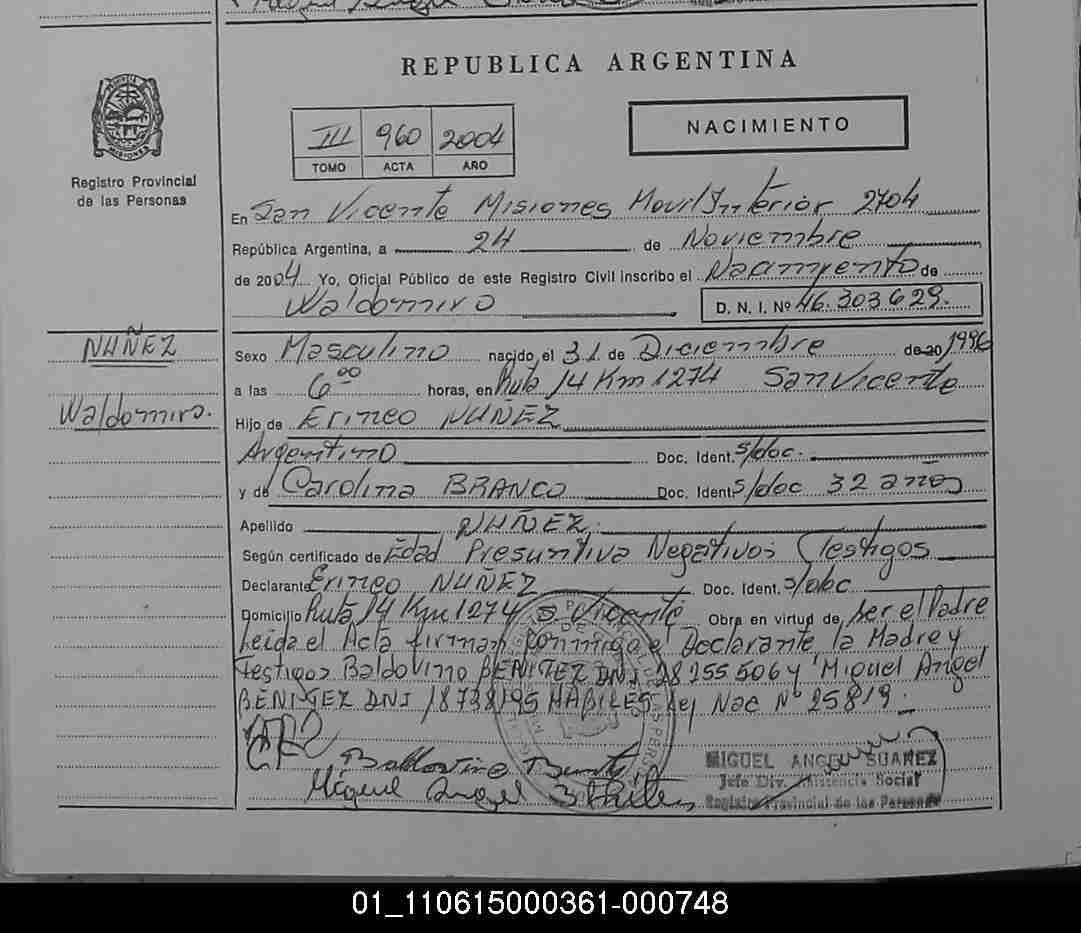 REPUBLICA ARGENTINA
PROVINCIA
MISIONES
Registro Provincial
de las Personas
III 960 2004
TOMO ACTA AÑO
NACIMIENTO
En San Vicente Misiones Movil Interior 2704
República Argentina, a 24 de Noviembre
de 2004 Yo, Oficial Público de este Registro Civil inscribo el Nacimyento de
Waldomiro D. N. I. Nº 46.303629.
NUÑEZ
Sexo Masculino nacido el 31 de Diciembre de 20 1996
a las 6 00 horas, en Ruta 14 Km 1274 San Vicente
Waldomiro.
Hijo de Erineo NUÑEZ
Argentino Doc. Ident. s/doc.
y de Carolina BRANCO Doc. Ident. s/doc 32 años
Apellido NUÑEZ.
Según certificado de Edad Presuntiva Negativos (Testigos
Declarante Erineo NUÑEZ Doc. Ident. s/doc
Domicilio Ruta 14 Km 1274 S Vicente Obra en virtud de Ser el Padre
Leida el Acta firman conmigo el Declarante, la Madre y
Testigos Baldovino BENITEZ DNI 28255506 y Miguel Angel
BENITEZ DNI 18738195 HABILES Ley Nac Nº 25819.
MIGUEL ANGEL SUAREZ
Miguel Angel
Jefe Div. Asistencia Social
Registro Provincial de las Personas
01_110615000361-000748